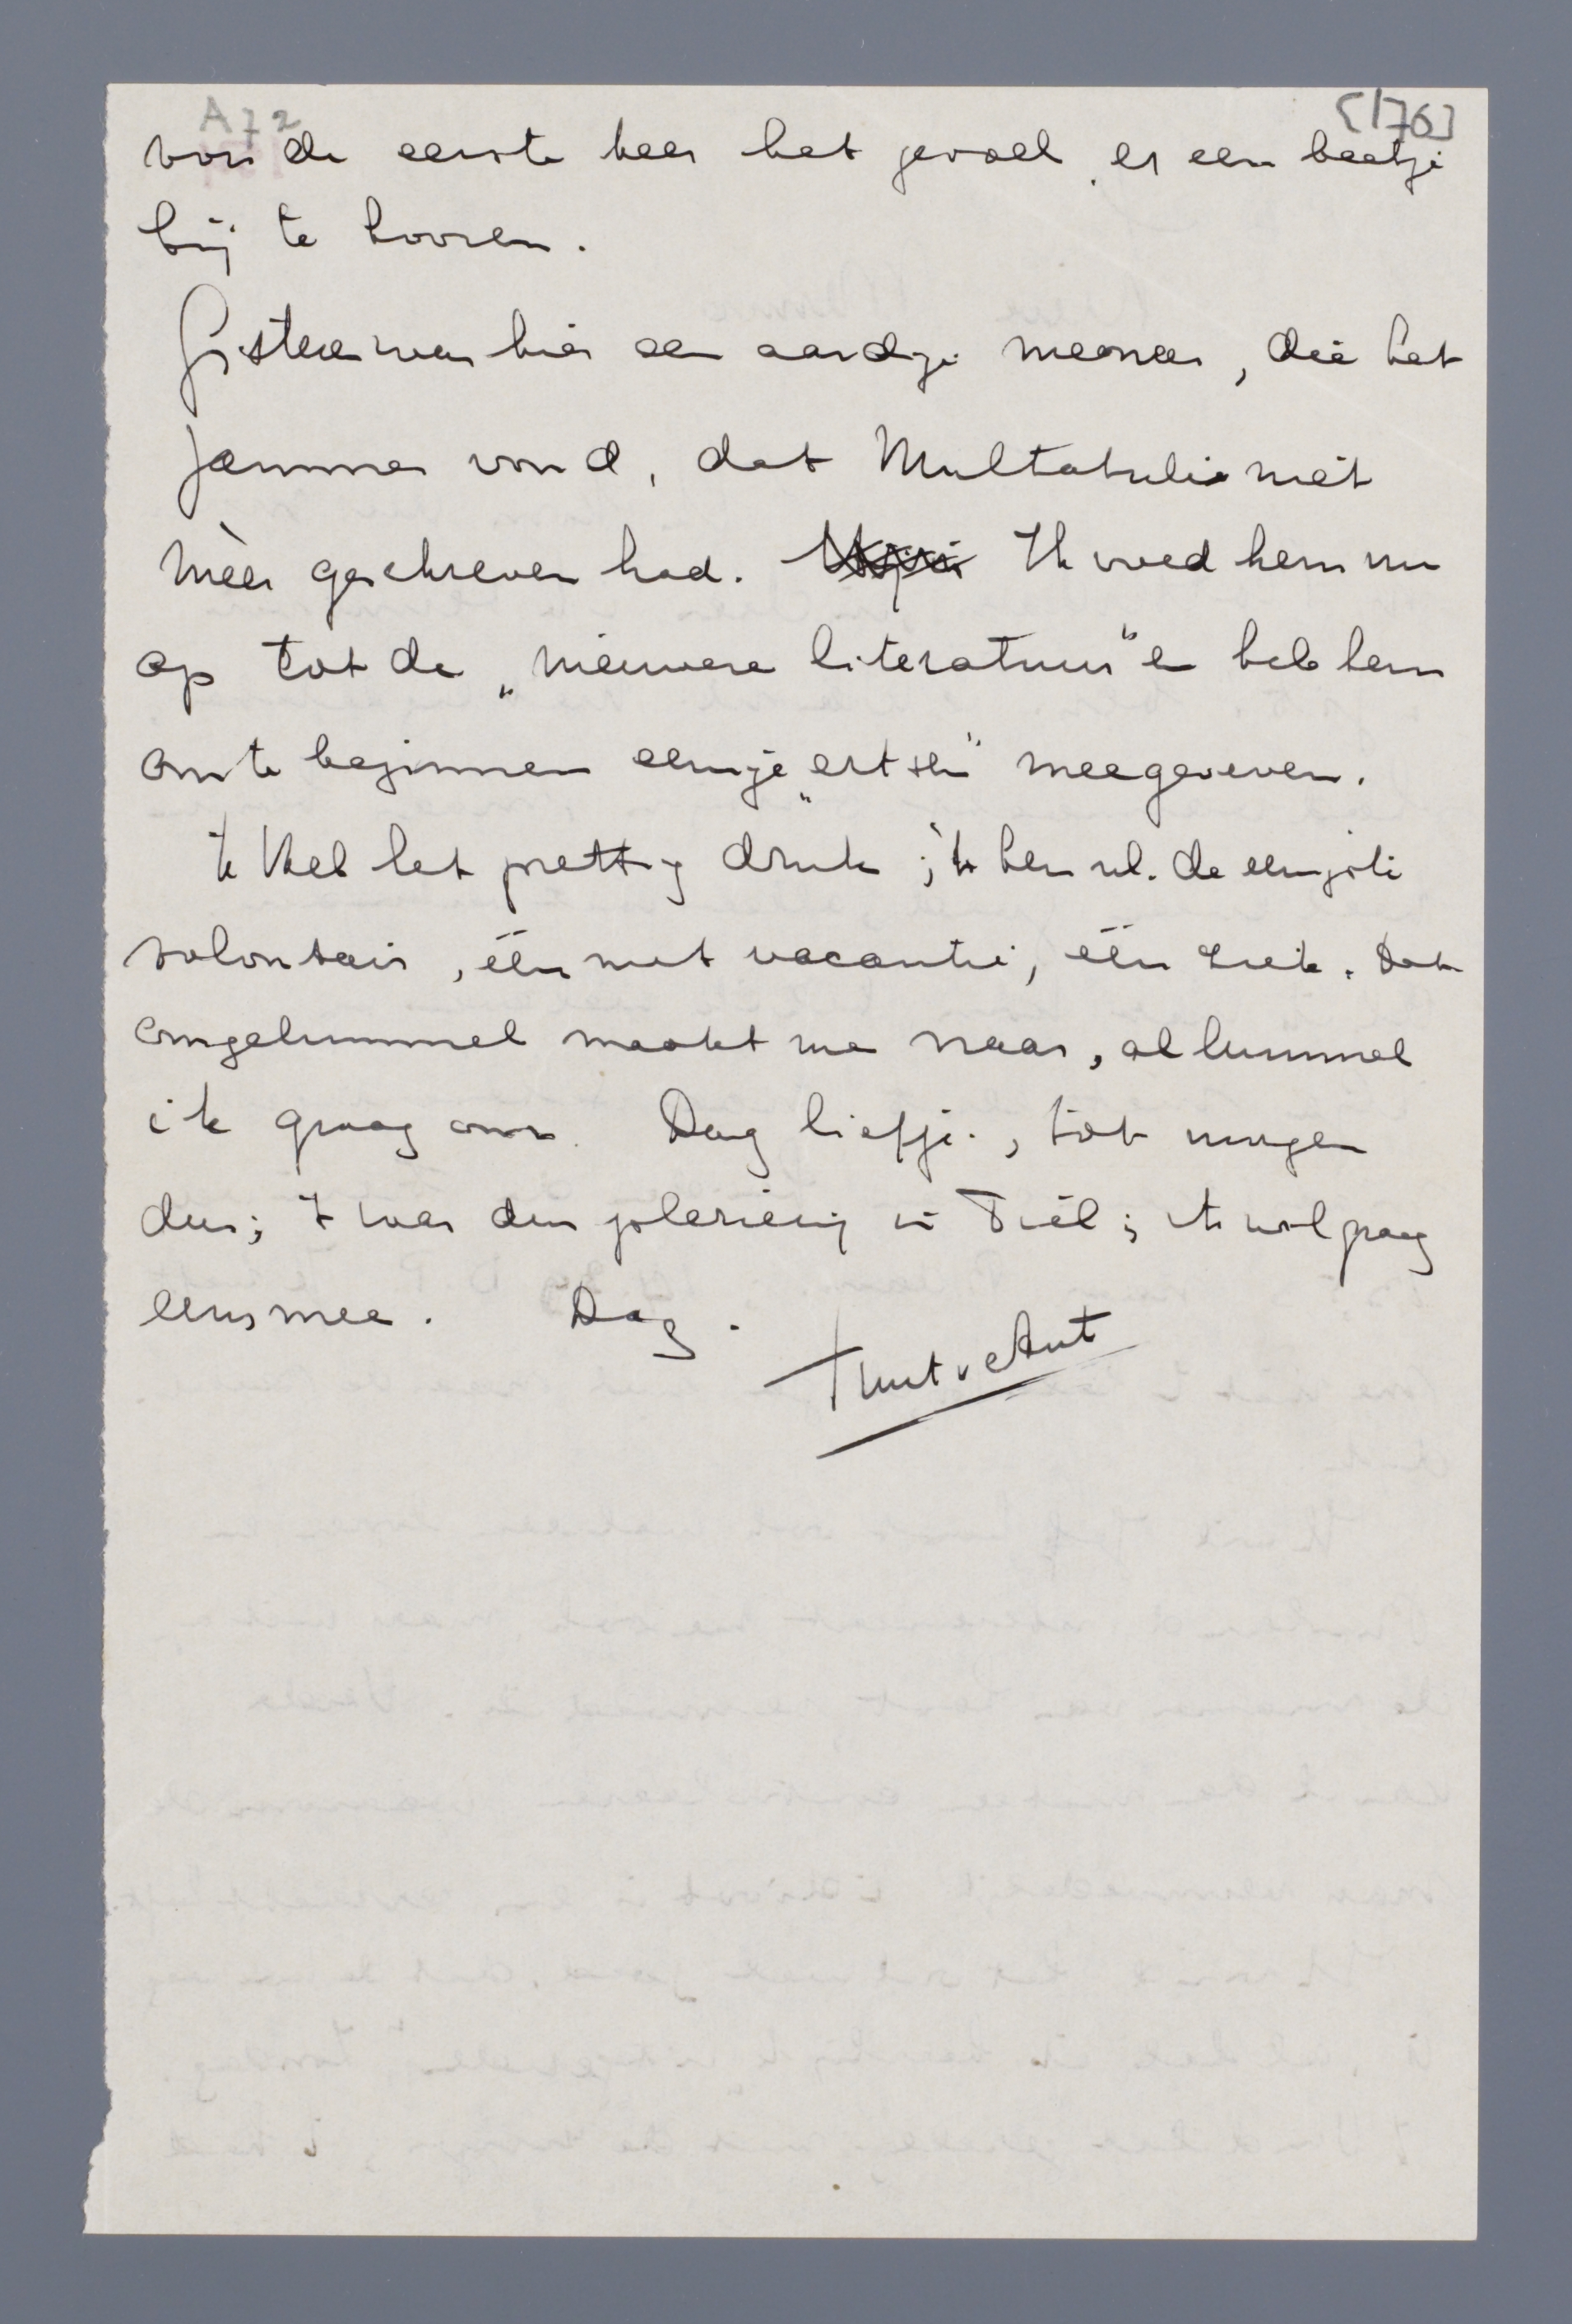 A72
[176]
voor de eerste keer het gevoel er een beetje
bij te hooren.
Gisteren was hier een aardige meneer, die het
jammer vond, dat Multatuli niet
mèer geschreven had. Ik voed hem nu
op tot de „nieuwere literatuur" en heb hem
om te beginnen eenige „ertsen" meegegeven.
Ik heb het prettig druk; ik ben nl. de eenige
volontair, één met vacantie, één ziek. Dat
omgelummel maakt me naar, al lummel
ik graag om. Dag liefje, tot morgen
dus; 't was dus plezierig in Tiel; ik wil graag
eens mee. Dag.